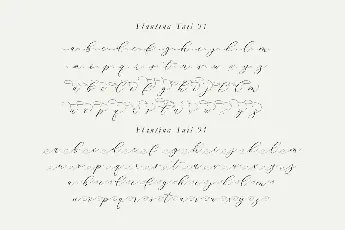 Plantina Tail 01
a b c d e f g h i j k l m
n o p q r s t u v w x y z
a b c d e f g h i j k l m
n o p q r s t u v w x y z
Plantina Tail 01
a b c d e f g h i j k l m
n o p q r s t u v w x y z
a b c d e f g h i j k l m
n o p q r s t u v w x y z